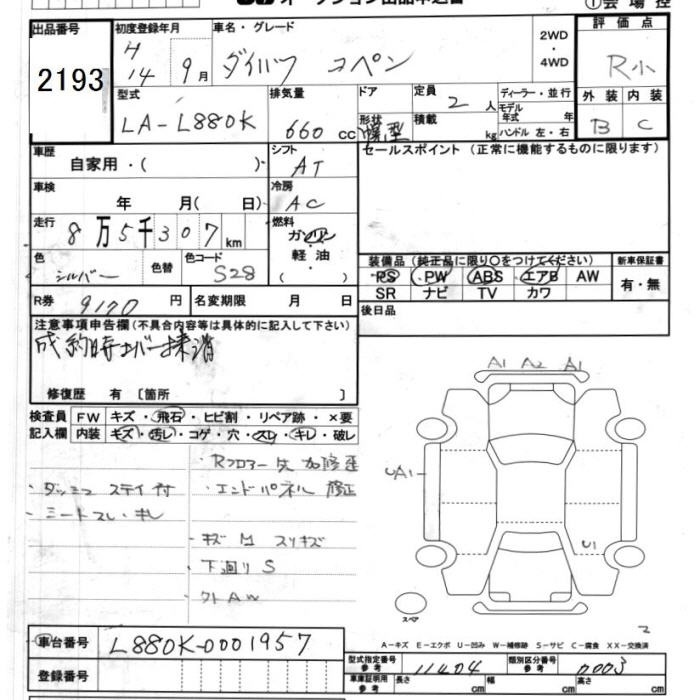 出品番号
2193
初度登録年月
H
14 9月
車名・グレード
ダイハツ コペン
2WD
・
4WD
評価点
R小
型式
LA-L880K
排気量
660 cc
ドア
形状
定員
2 人
積載
kg
ディーラー・並行
モデル
年式 年
ハンドル 左・右
外装 内装
B C
車歴
自家用・( )
シフト
AT
セールスポイント (正常に機能するものに限ります)
車検
年 月( 日)
冷房
AC
走行
8万5千307km
燃料
ガソリン
軽油・
( )
色
シルバー
色替
色コード
S28
装備品(純正品に限り○をつけてください)
PS PW ABS エアB AW
SR ナビ TV カワ
新車保証書
有・無
R券
9170 円
名変期限 月 日
後日品
注意事項申告欄(不具合内容等は具体的に記入して下さい)
修復歴 有〔箇所 〕
検査員 FW キズ・飛石・ヒビ割・リペア跡・×要
記入欄 内装 キズ・汚レ・コゲ・穴・スレ・キレ・破レ
・エンドパネル 修正
・キズ M スリキズ
・下廻り S
A1 A2 A1
UA1
U1
スペア
2
A-キズ E-エクボ U-凹み W-補修跡 S-サビ C-腐食 XX-交換済
車台番号
L880K-0001957
登録番号
型式指定番号
参考
11404
類別区分番号
参考
0003
車庫証明用
参考
長さ cm 幅 cm 高さ cm